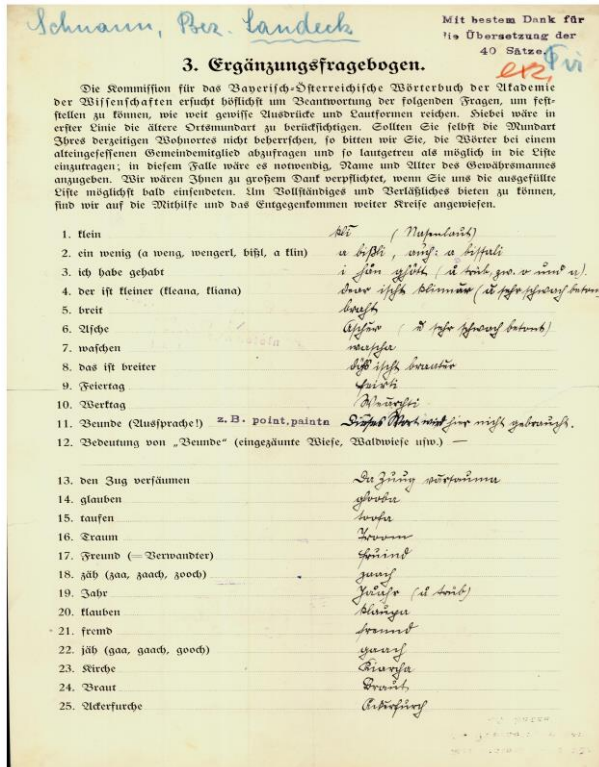 Schnann, Bez. Landeck
Mit bestem Dank für
die Übersetzung der
40 Sätze.
3. Ergänzungsfragebogen.
Die Kommission für das Bayerisch-Österreichische Wörterbuch der Akademie
der Wissenschaften ersucht höflichst um Beantwortung der folgenden Fragen, um fest-
stellen zu können, wie weit gewisse Ausdrücke und Lautformen reichen. Hiebei wäre in
erster Linie die ältere Ortsmundart zu berücksichtigen. Sollten Sie selbst die Mundart
Ihres derzeitigen Wohnortes nicht beherrschen, so bitten wir Sie, die Wörter bei einem
alteingesessenen Gemeindemitglied abzufragen und so lautgetreu als möglich in die Liste
einzutragen; in diesem Falle wäre es notwendig, Name und Alter des Gewährsmannes
anzugeben. Wir wären Ihnen zu großem Dank verpflichtet, wenn Sie uns die ausgefüllte
Liste möglichst bald einsendeten. Um Vollständiges und Verläßliches bieten zu können,
sind wir auf die Mithilfe und das Entgegenkommen weiter Kreise angewiesen.
1. klein klī (Nasenlaut)
2. ein wenig (a weng, wengerl, bißl, a klin) a bißli, auch: a bissali
3. ich habe gehabt i hån ghött (å trüb, zw. o und a).
4. der ist kleiner (kleana, kliana) dear ischt klinnar (å sehr schwach betont
5. breit
6. Asche (å sehr schwach betont)
7. waschen wascha
8. das ist breiter ischt braater
9. Feiertag Feirti
10. Werktag Wearchti
11. Beunde (Aussprache!) z.B. point, paintn Dieses Wort wird hier nicht gebraucht.
12. Bedeutung von „Beunde“ (eingezäunte Wiese, Waldwiese usw.) —
13. den Zug versäumen Da Zuug varsauma
14. glauben glooba
15. taufen toofa
16. Traum Troom
17. Freund (= Verwandter) Fruind
18. zäh (zaa, zaach, zooch) zaach
19. Jahr Jåahr (å trüb)
20. klauben klaupa
21. fremd fremd
22. jäh (gaa, gaach, gooch) gaach
23. Kirche Kiarcha
24. Braut Braut
25. Ackerfurche Ackrfurch